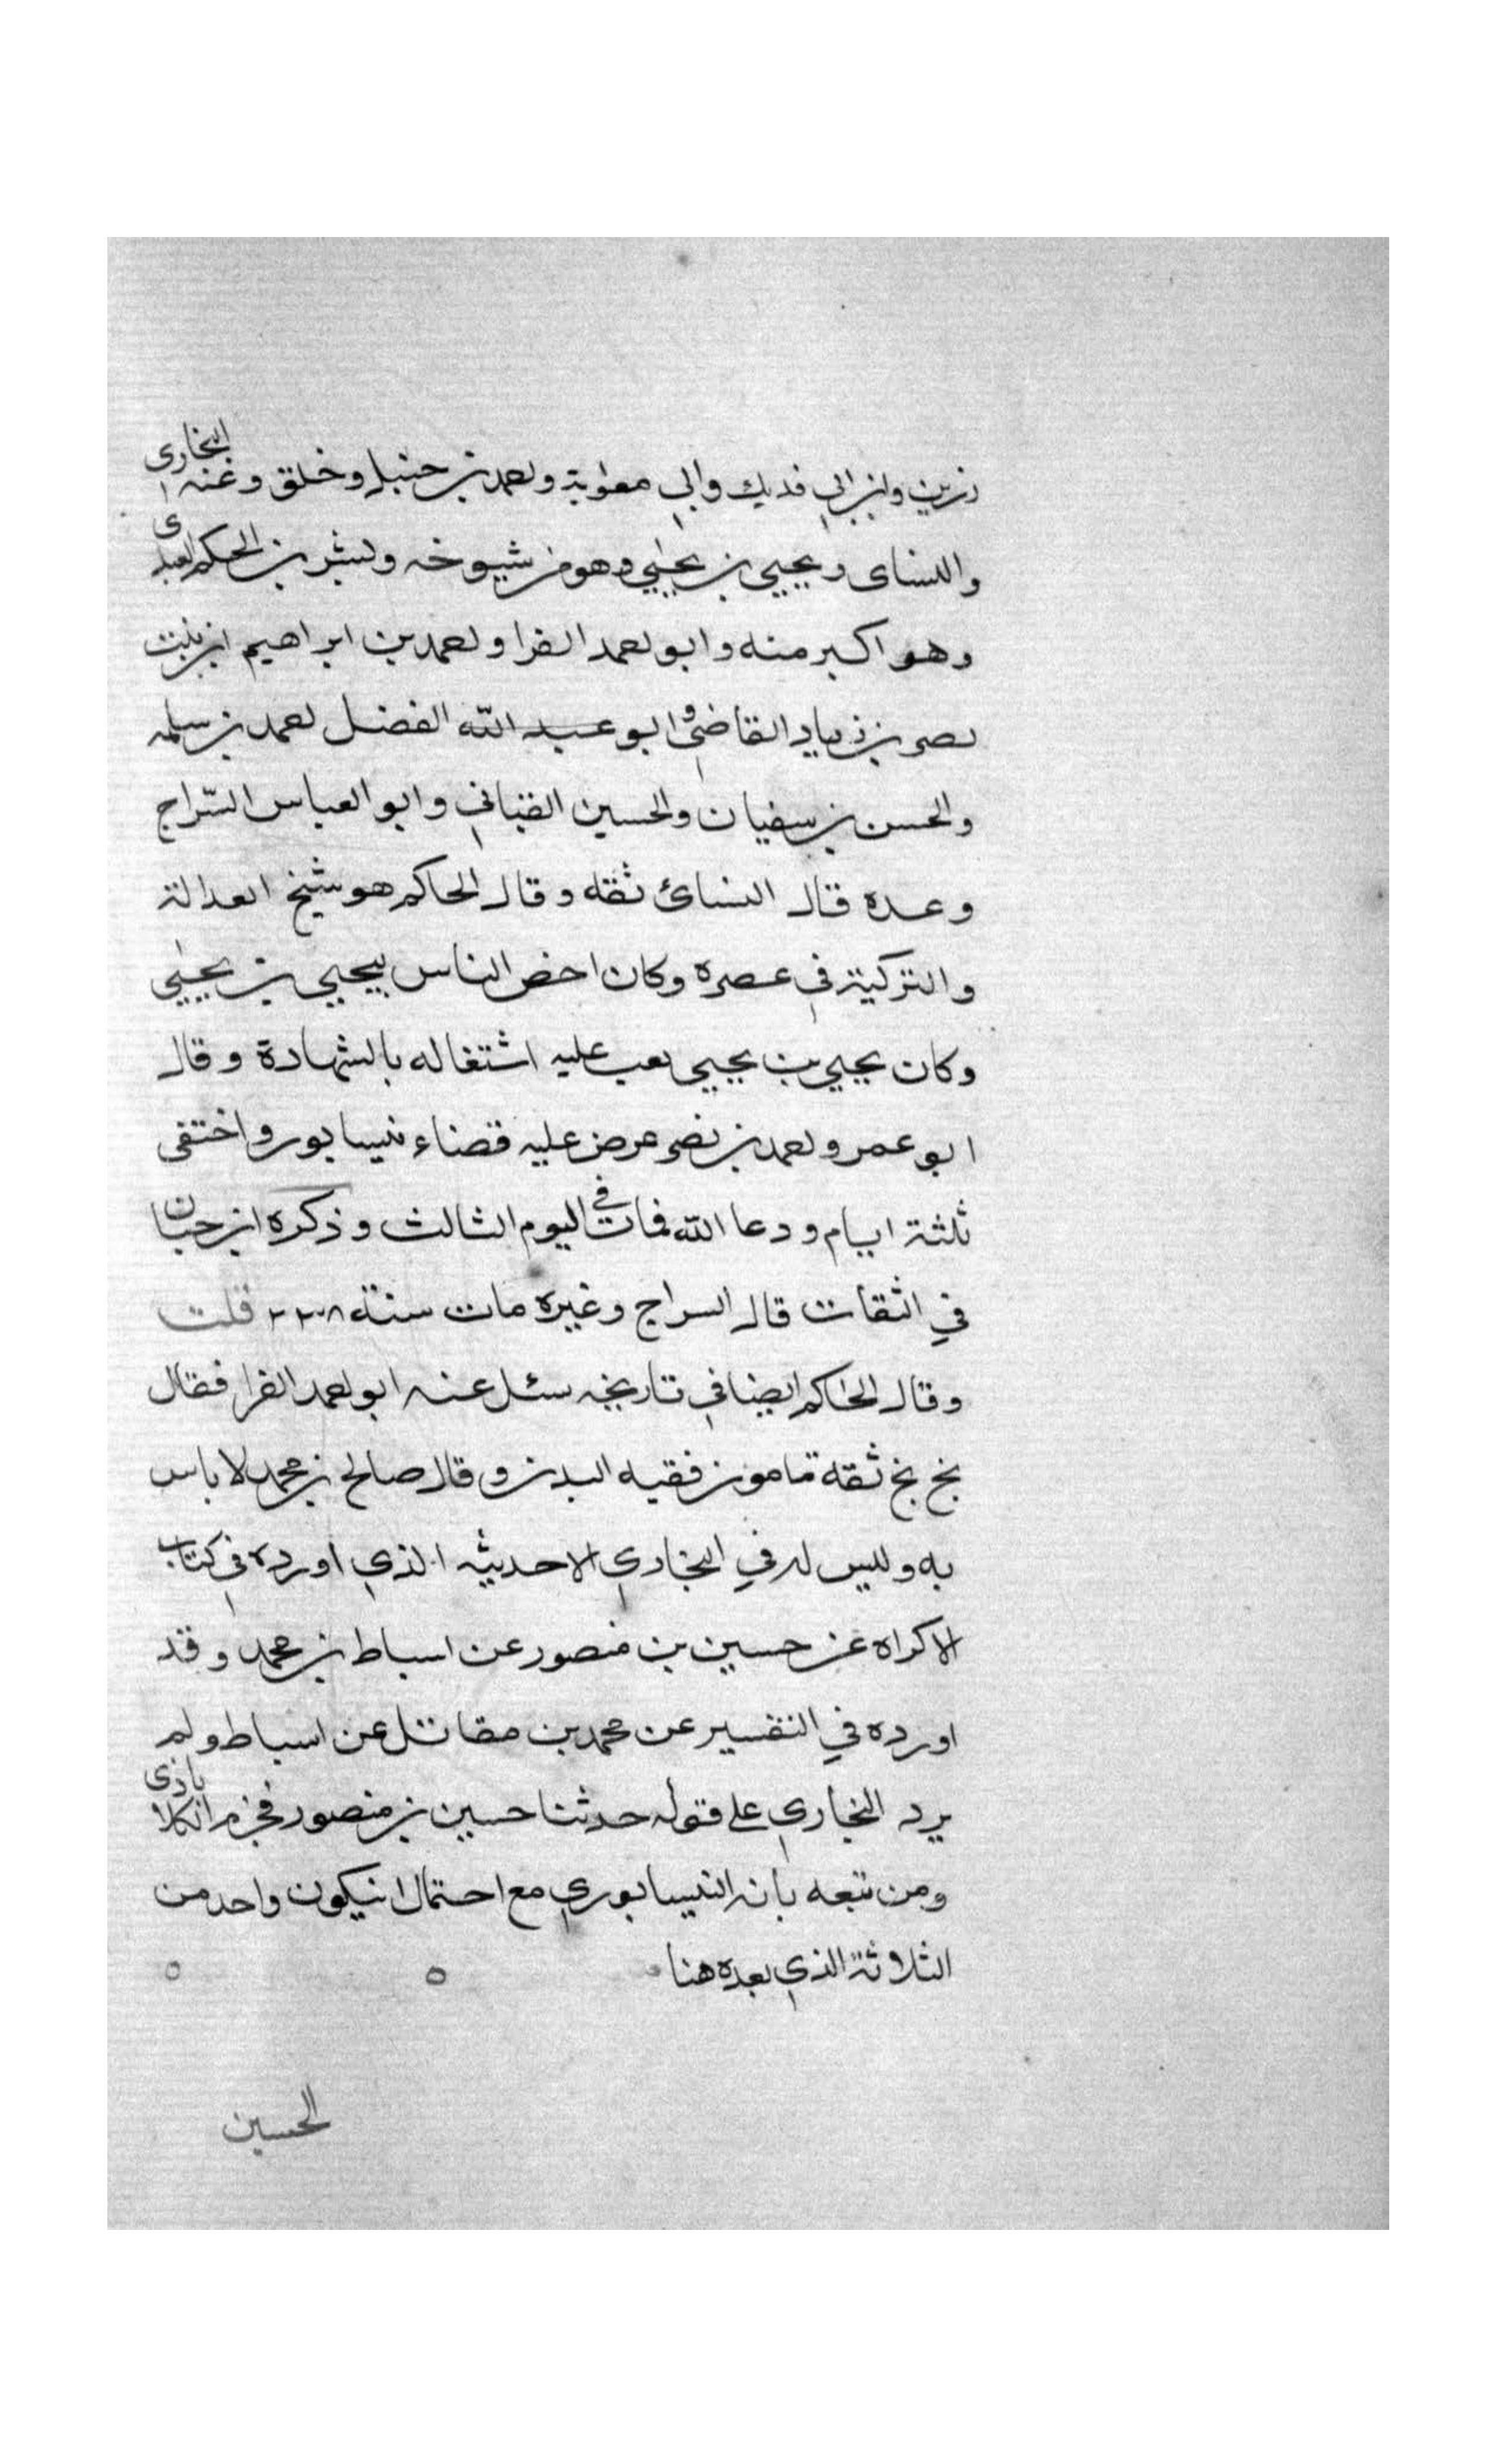 رزين وابن ابي فديك وابي معوية واحمد بن حنبل وخلق وعنه البخارى
والنساى و يحيي بن يحيي وهو من شيوخه وبشر بن الحكم العبدى
وهو اكبر منه وابو احمد الفرا واحمد بن ابراهيم ابن بنت
نصر بن زياد القاضي وابو عبد الله الفضل احمد بن سلمه
والحسن بن سفيان والحسين القبانى وابو العباس السّراج
وعده قال النسائ ثقه وقال الحاكم هو شيخ العدالة
والتزكية في عصره وكان اخص الناس بيحيي بن يحيي
وكان يحيي بن يحيي يعب عليه اشتغاله بالشهادة وقال
ابو عمرو احمد بن نصر عرض عليه قضاء نيسابور واختفى
ثلثة ايام ودعا الله فمات في اليوم الثالث وذكره ابن حبان
في الثقات قال السراج وغيره مات سنة ٢٣٨ قلت
وقال الحاكم ايضا في تاريخه سئل عنه ابو احمد الفرا فقال
بخ بخ ثقه مامون فقيه البدن وقال صالح بن محمد لا باس
به وليس له في البخاري الا حديثه الذي اورده في كتاب
الاكراه عن حسين بن منصور عن اسباط بن محمد وقد
اورده في التفسير عن محمد بن مقاتل عن اسباط ولم
يرد البخاري على قوله حدثنا حسين بن منصور فجزم الكلاباذى
ومن تبعه بانه النيسابوري مع احتمال ان يكون واحد من
الثلاثة الذي بعده هنا
الحسين